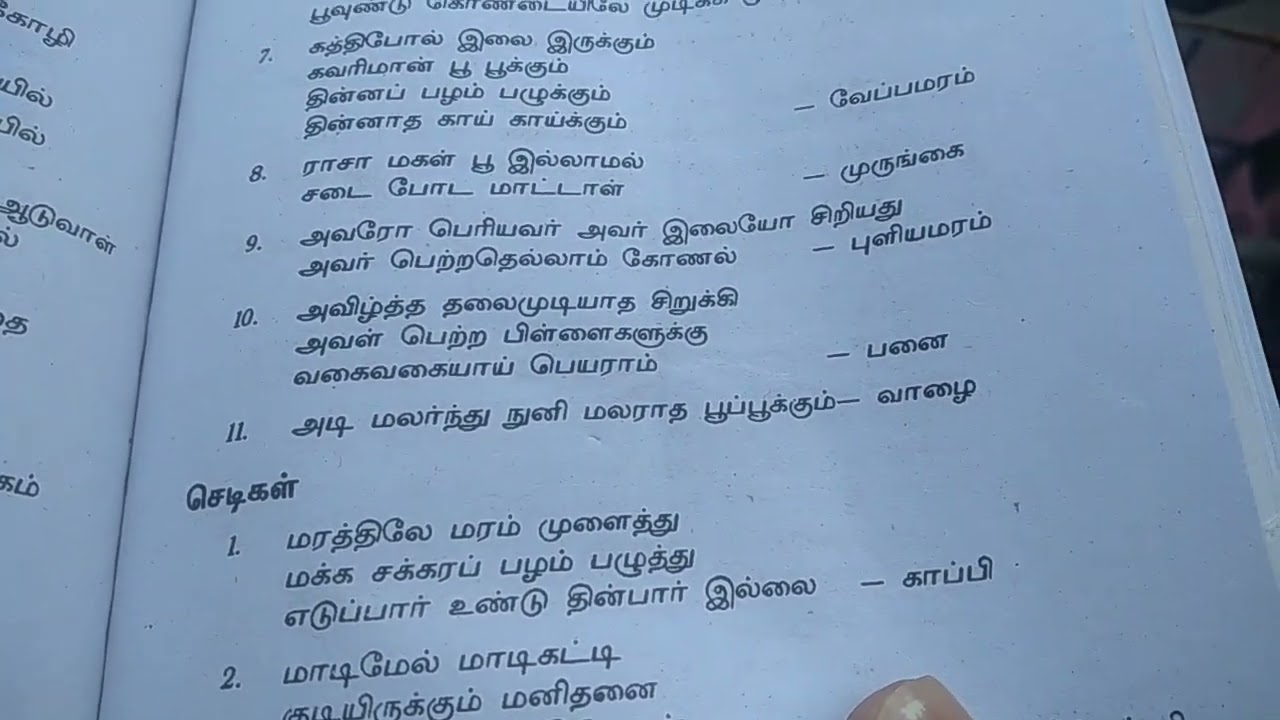 கோழி
யில்
பில்
ஆடுவாள்
ல்
த
கம்
பூவுண்டு கொண்டையிலே
7. கத்திபோல் இலை இருக்கும்
கவரிமான் பூ பூக்கும்
தின்னப் பழம் பழுக்கும்
தின்னாத காய் காய்க்கும் – வேப்பமரம்
8. ராசா மகள் பூ இல்லாமல்
சடை போட மாட்டாள் – முருங்கை
9. அவரோ பெரியவர் அவர் இலையோ சிறியது
அவர் பெற்றதெல்லாம் கோணல் – புளியமரம்
10. அவிழ்த்த தலைமுடியாத சிறுக்கி
அவள் பெற்ற பிள்ளைகளுக்கு
வகைவகையாய் பெயராம் – பனை
11. அடி மலர்ந்து நுனி மலராத பூப்பூக்கும்– வாழை
செடிகள்
1. மரத்திலே மரம் முளைத்து
மக்க சக்கரப் பழம் பழுத்து
எடுப்பார் உண்டு தின்பார் இல்லை – காப்பி
2. மாடிமேல் மாடிகட்டி
குடியிருக்கும் மனிதனை